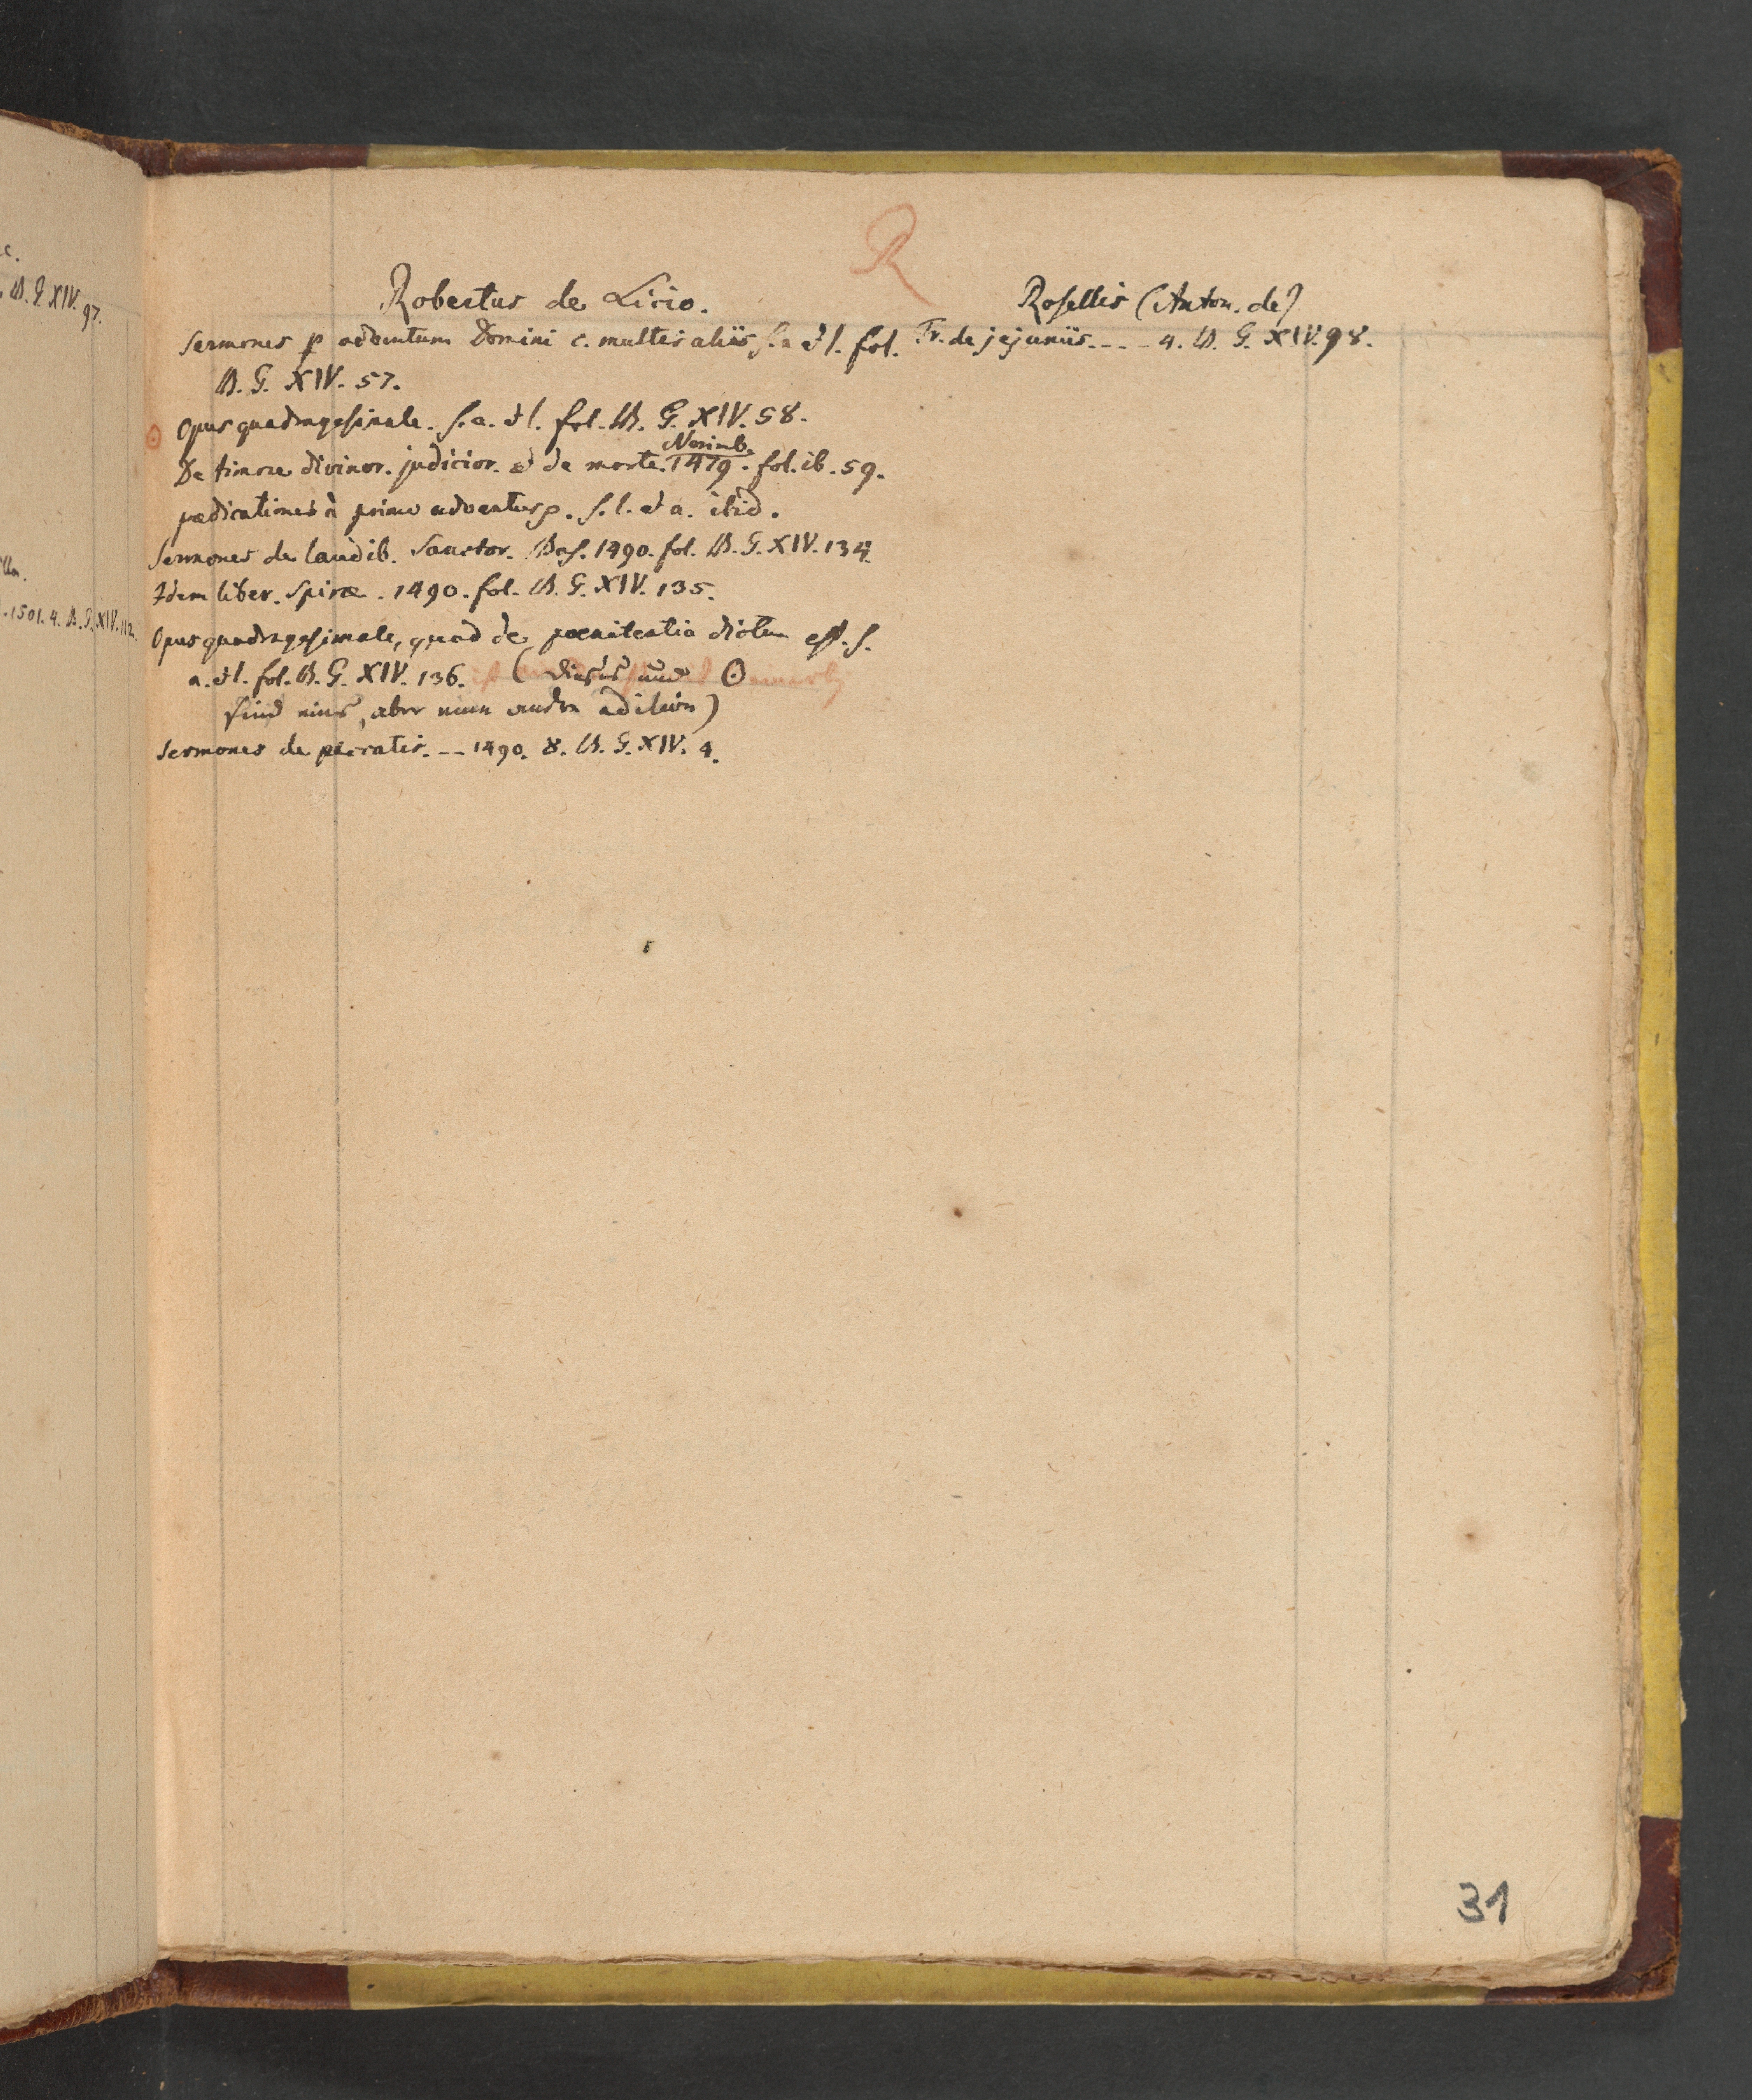 c.
B. G. XIV. 97.
.1501. 4. B. G. XIV. 112.
R
Robertus de Licio.
Sermones p adventum Domini c. multis aliis s. a et l. fol.
B. G. XIV. 57.
⊙ Opus quadragesimale. s. a. et l. fol. B. G. XIV. 58.
Norimb.
De timore divinor. judicior. et de morte. 1479. fol. ib. 59.
pædicationes à primo adventus p. s. l. et a. ibid.
Sermones de laudib. Sanctor. Bas. 1490. fol. B. G. XIV. 134.
Idem liber. Spiræ. 1490. fol. B. G. XIV. 135.
Opus quadragesimale, quod de poenitentia dictum est. s.
a. et l. fol. B. G. XIV. 136. (Dieses und ⊙
sind eins, aber eine andre Edition)
Sermones de peccatis. -- 1490. 8. B. G. XIV. 4.
Rosellis (Anton. de)
Tr. de jejuniis. --- 4. B. G. XIV. 98.
31